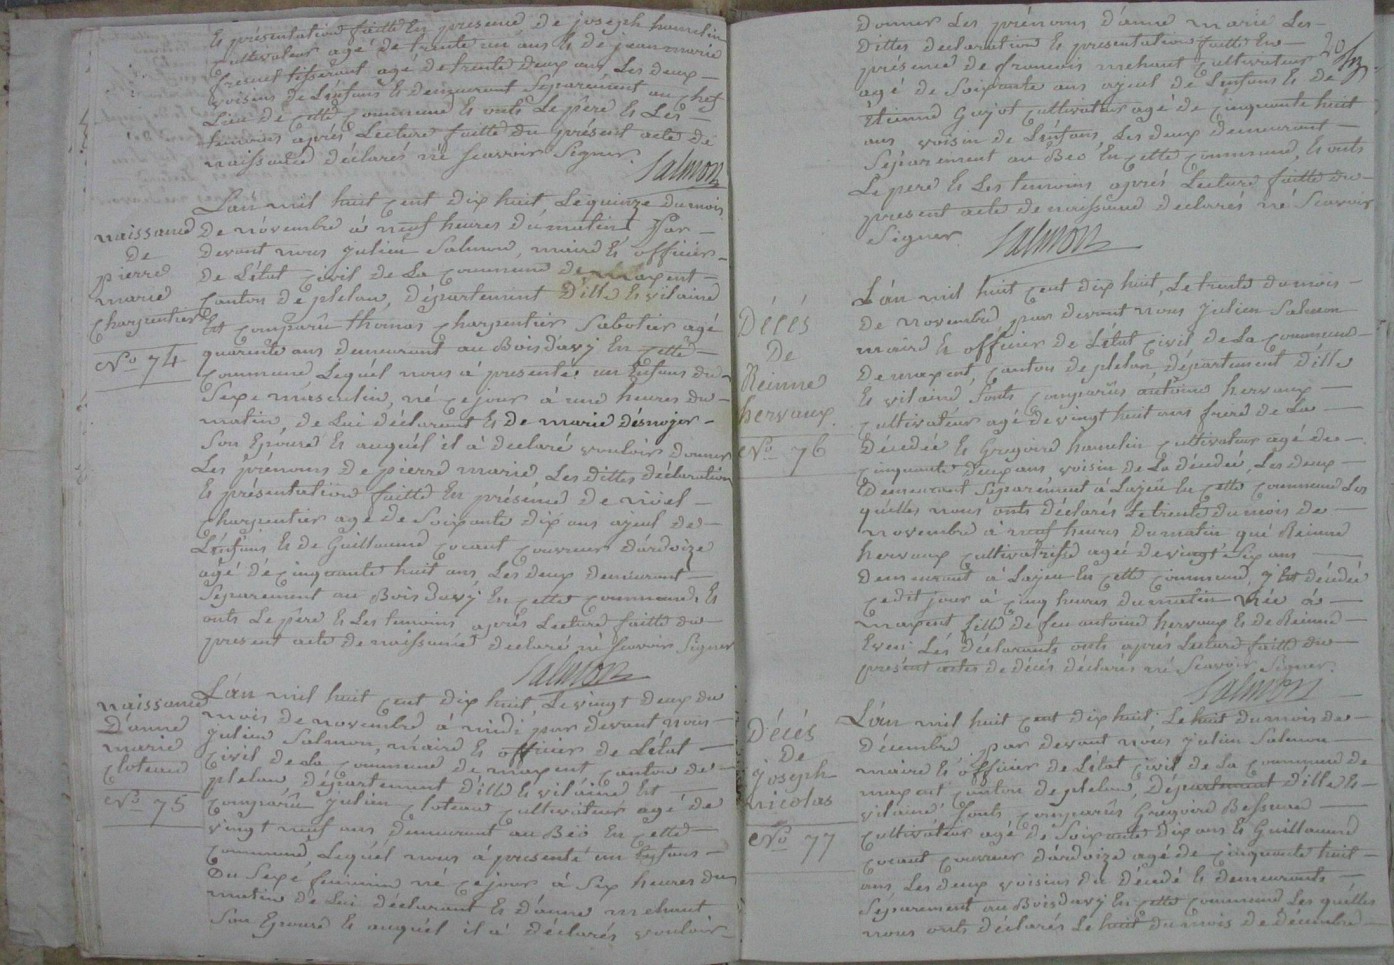 Et présentation faitte En présence de joseph hamelin
Cultivateur agé de trente un ans Et de jean marie
tisserant agé de trente deux ans Les deux
voisins de L'enfans Et demeurant Séparément au chef
Lieu de cette commune Et onts Le père Et Les
temoins après Lecture faitte du présent acte de
naissance déclarés né Scavoir Signer.
Salmon
naissance
de
pierre
marie
charpentier
No. 74
L'an mil huit cent dix huit Le quinze du mois
de novembre à neuf heures du matin Par
devant nous julien Salmon, maire Et officier
de L'état civil de La commune de maxent
canton de plelan, département D'ille Et vilaine
Est comparû thomas charpentier Sabotier agé
quarente ans demeurant au Bois davy En cette
commune Lequel nous à presenté un Enfans du
Sexe masculin, né cejour à une heures du
matin, de Lui déclarant Et de marie désnojer
Son Epouse Et auquél il à déclaré vouloir donner
Les prénoms de pierre marie, Les dittes déclaration
Et présentation faitte En présence de nöel
charpentier agé de Soixante dix ans ajeul de
L'enfans Et de Guillaume cocaut couvreur d'ardoize
agé de cinquante huit ans, Les deux demeurant
Séparement au Bois davy En cette commune, Et
onts Le père Et Les temoins après Lecture faitte du
present acte de naissance déclaré né Scavoir Signer
Salmon
naissance
D'anne
marie
cloteau
No. 75
L'an mil huit cent dix huit Le vingt deux du
mois de novembre à midi par devant nous
julien Salmon, maire Et officier de L'état
civil de La commune de maxent canton de
plelan, département D'ille Et vilaine Est
comparû julien cloteau cultivateur agé de
vingt neuf ans demeurant au Béo En cette
commune, Lequél nous à presenté un Enfans
Du Sexe feminin né cejour à Six heures du
matin de Lui déclarant Et d'anne mehaut
Son Epouse Et auquél il à déclarés vouloir
donner Les prénoms d'anne marie Les
dittes déclaration Et presentation faitte En
présence de francois mehaut cultivateur
agé de Soixante ans ajeul de L'enfans Et de
Étienne Guyot cultivateur agé de cinquante huit
ans voisin de L'enfans, Les deux demeurant
Séparement au Béo En cette commune, Et onts
Le pere Et Les temoins après Lecture faitte du
present acte de naissance declarés né Scavoir
Signer
Salmon
Décés
De
Reinne
hervaux.
No. 76
L'an mil huit cent dix huit, Le trente du mois
de novembre par devant nous julien Salmon
maire Et officier de L'état civil de La commune
De maxent, canton de plelan, département D'ille
Et vilaine Sonts comparûs antoine hervaux
cultivateur agé de vingt huit ans frere de La
Décédée Et Gregoire hamelin cultivateur agé de
cinquante deux ans voisin de La décedée, Les deux
Demeurant Séparément à Lajeu En cette commune Les
quélles nous onts déclarés Le trente du mois de
novembre à neuf heures du matin que Reinne
hervaux cultivatrise agée de vingt Six ans
demeurant à Lajeu En cette commune, y Est décédée
cedit jour à cinq heures du matin née à
maxent fille de feu antoine hervaux Et de Reinne
Even: Les déclarants onts après Lecture faitte du
présent actes de décés déclarés né Scavoir Signer.
Salmon
Décés
De
joseph
nicolas
No. 77
L'an mil huit cent dix huit: Le huit du mois de
décembre par devant nous julien Salmon
maire Et officier de L'état civil de La commune de
maxent canton de plelan, Département D'ille Et
vilaine, Sonts comparûs Gregoire Bessare
cultivateur agé de Soixante dix ans Et Guillaume
cocaut couvreur d'ardoize agé de cinquante huit
ans, Les deux voisins du décédé Et demeurants
Séparement au Bois davy En cette commune Les quélles
nous onts déclarés Le huit du mois de décembre